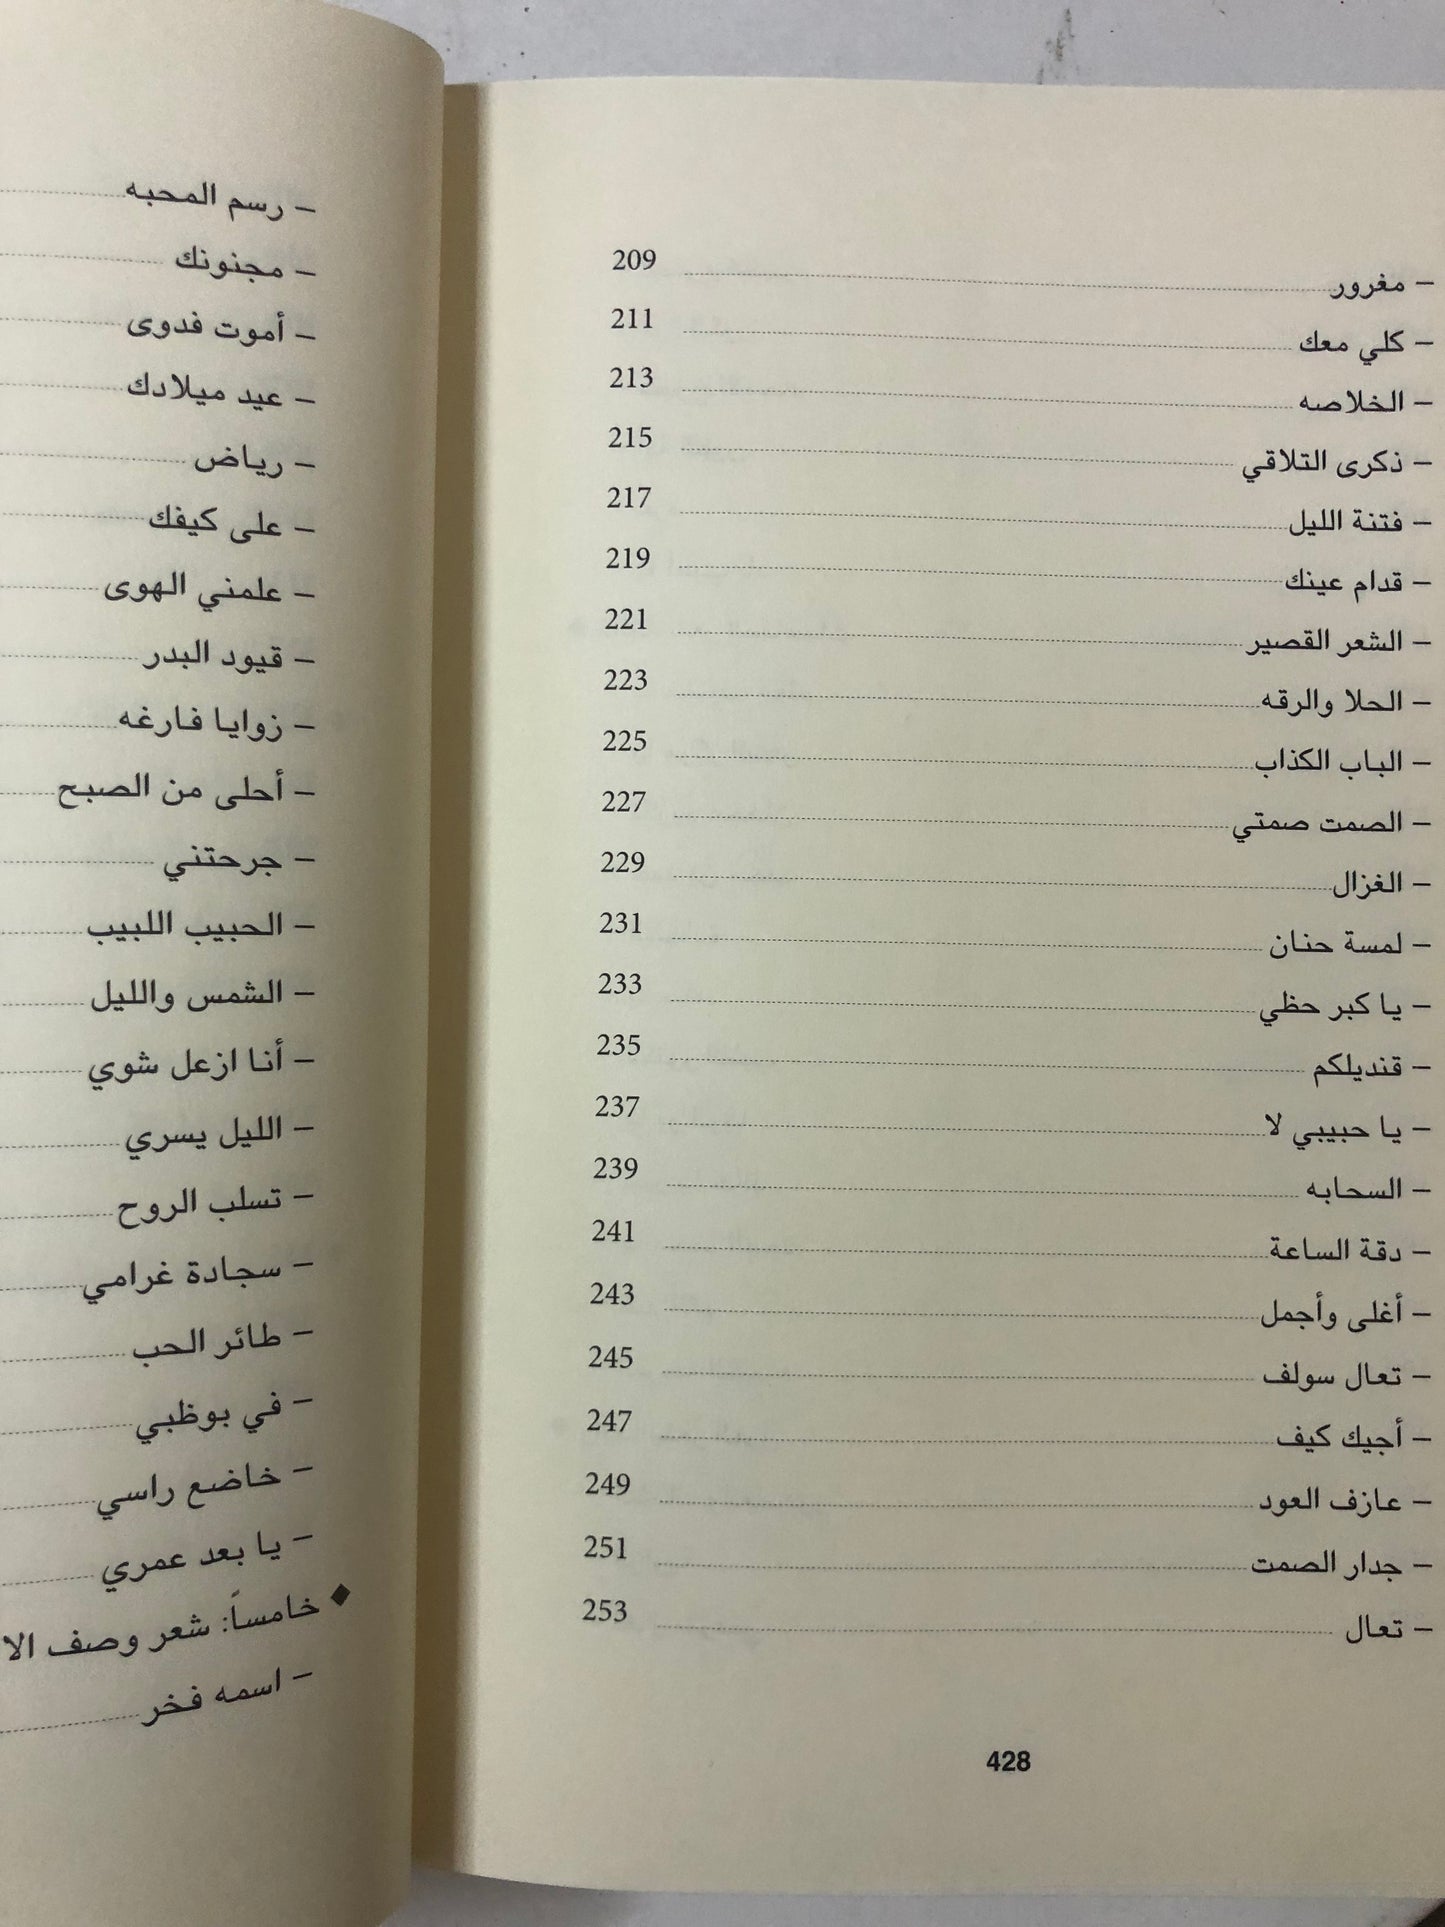 – مغرور 209
– كلي معك 211
– الخلاصه 213
– ذكرى التلاقي 215
– فتنة الليل 217
– قدام عينك 219
– الشعر القصير 221
– الحلا والرقه 223
– الباب الكذاب 225
– الصمت صمتي 227
– الغزال 229
– لمسة حنان 231
– يا كبر حظي 233
– قنديلكم 235
– يا حبيبي لا 237
– السحابه 239
– دقة الساعة 241
– أغلى وأجمل 243
– تعال سولف 245
– أجيك كيف 247
– عازف العود 249
– جدار الصمت 251
– تعال 253
428
– رسم المحبه
– مجنونك
– أموت فدوى
– عيد ميلادك
– رياض
– على كيفك
– علمني الهوى
– قيود البدر
– زوايا فارغه
– أحلى من الصبح
– جرحتني
– الحبيب اللبيب
– الشمس والليل
– أنا ازعل شوي
– الليل يسري
– تسلب الروح
– سجادة غرامي
– طائر الحب
– في بوظبي
– خاضع راسي
– يا بعد عمري
◆ خامساً: شعر وصف
– اسمه فخر